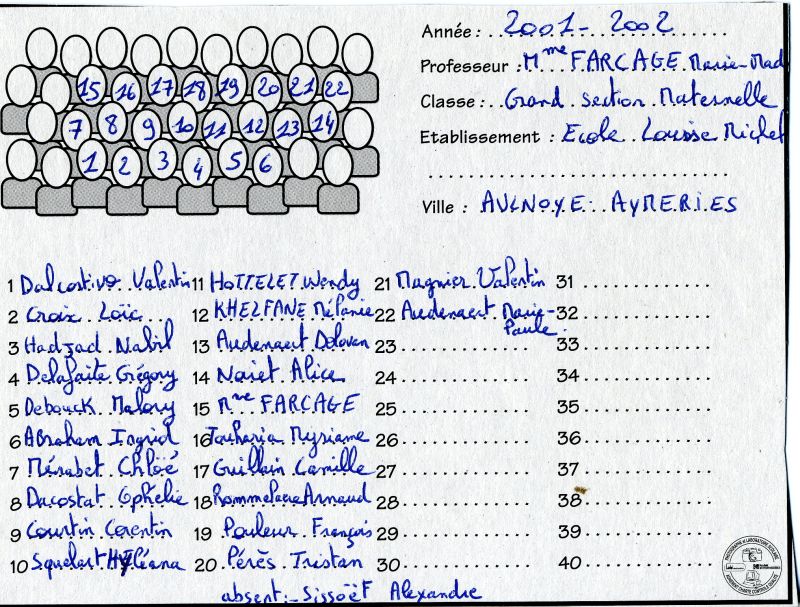 Année : 2001 - 2002
Professeur : Mme FARCAGE Marie-Mad
Classe : Grand section Maternelle
Etablissement : Ecole Louise Michel
Ville : AULNOYE AYMERIES
15 16 17 18 19 20 21 22
7 8 9 10 11 12 13 14
1 2 3 4 5 6
1 Dalcostivo Valentin 11 HOTTELET Wendy 21 Magnier Valentin 31
2 Croix Loïc 12 KHELFANE Mélanie 22 Audenaert Marie-Paule 32
3 Hadjad Nabil 13 Audenaert Dolovan 23 33
4 Delafaite Grégory 14 Noiret Alice 24 34
5 Debouck Malory 15 Mme FARCAGE 25 35
6 Abraham Ingrid 16 Myriame 26 36
7 Mérabet Chloé 17 Guillain Camille 27 37
8 Dacostat Ophélie 18 Arnaud 28 38
9 Courtin Corentin 19 Pouleur François 29 39
10 Squelart Hyléana 20 Pérès Tristan 30 40
absent :- Sissoëf Alexandre